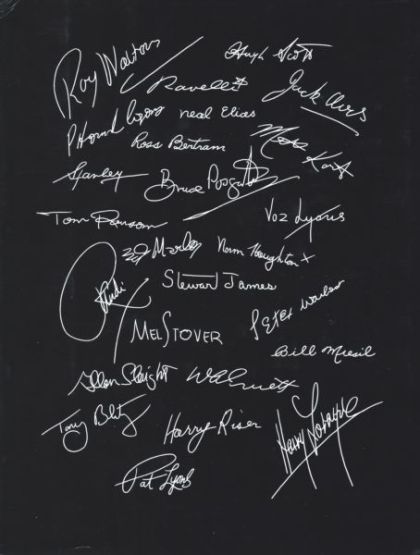 Roy Walton
Hugh Scott
Ravelli
Jack Avis
P Howard Lyons
Neal Elias
Ross Bertram
Max Katz
Stanley
Bruce Posgate
Tom Ransom
Voz Lyons
Ed Marlo
Norm Houghton
Stewart James
MEL STOVER
Peter Warlow
Bill Miesel
Allan Slaight
Tony
Harry Riser
Harry Lorayne
Pat Lyons